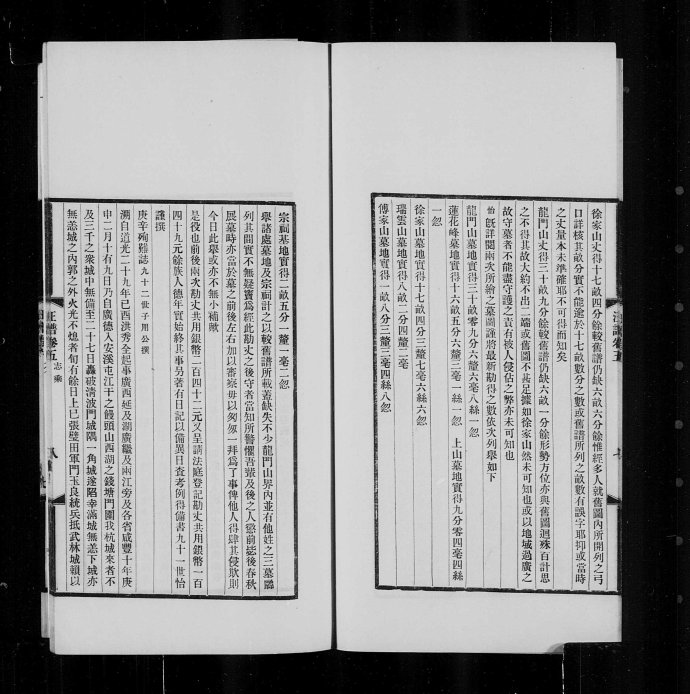 徐家山丈得十七畝四分餘較舊譜仍缺六畝六分餘惟經多人就舊圖內所開列之弓
口詳核其畝分實不能逾於十七畝數分之數或舊譜所列之畝數有誤字耶抑或當時
之丈量本未準確耶不可得而知矣
龍門山丈得三十畝九分餘較舊譜仍缺六畝一分餘形勢方位亦與舊圖迥殊百計思
之不得其故大約不出二端或舊圖不甚足據如徐家山然未可知也或以地域過廣之
故守墓者不能盡守護之責有被人侵佔之弊亦未可知也
怡旣詳閱兩次所繪之墓圖謹將最新勘得之數依次列舉如下
龍門山墓地實得三十畝零九分六釐六毫八絲一忽
蓮花峰墓地實得十六畝五分六釐三毫一絲一忽 上山墓地實得九分零四毫四絲
一忽
徐家山墓地實得十七畝四分三釐七毫六絲六忽
瑞雲山墓地實得八畝二分四釐二毫
傅家山墓地實得一畝八分三釐三毫四絲八忽
汪譜卷五
宗祠基地實得二畝五分一釐一毫二忽
舉諸處墓地及宗祠計之以較舊譜所載蓋缺失不少龍門山界內並有他姓之三墓羼
列其間實不無疑竇爲經此勘丈之後守者當知所警惕吾輩及後之人懲前毖後春秋
展墓時亦當於墓之前後左右加以審察毋以匆匆一拜爲了事俾他人得肆其侵欺則
今日此舉或亦不無小補歟
是役也前後兩次勘丈共用銀幣二百四十二元又呈請法庭登記勘丈共用銀幣一百
四十九元餘族人德年實始終其事另著有日記以備異日查考例得備書九十一世怡
謹撰
庚辛殉難誌九十二世子用公撰
溯自道光二十九年己酉洪秀全起事廣西延及湖廣繼及兩江旁及各省咸豐十年庚
申二月十有九日乃自廣德入安溪屯江干之饅頭山西湖之錢塘門圍我杭城來者不
及三千之衆城中無備至二十七日轟破清波門城隅一角城遂陷幸滿城無恙下城亦
無恙城之內郭之外火光不熄者旬有餘日上巳張璧田軍門玉良統兵抵武林城賴以
汪譜卷五 志乘